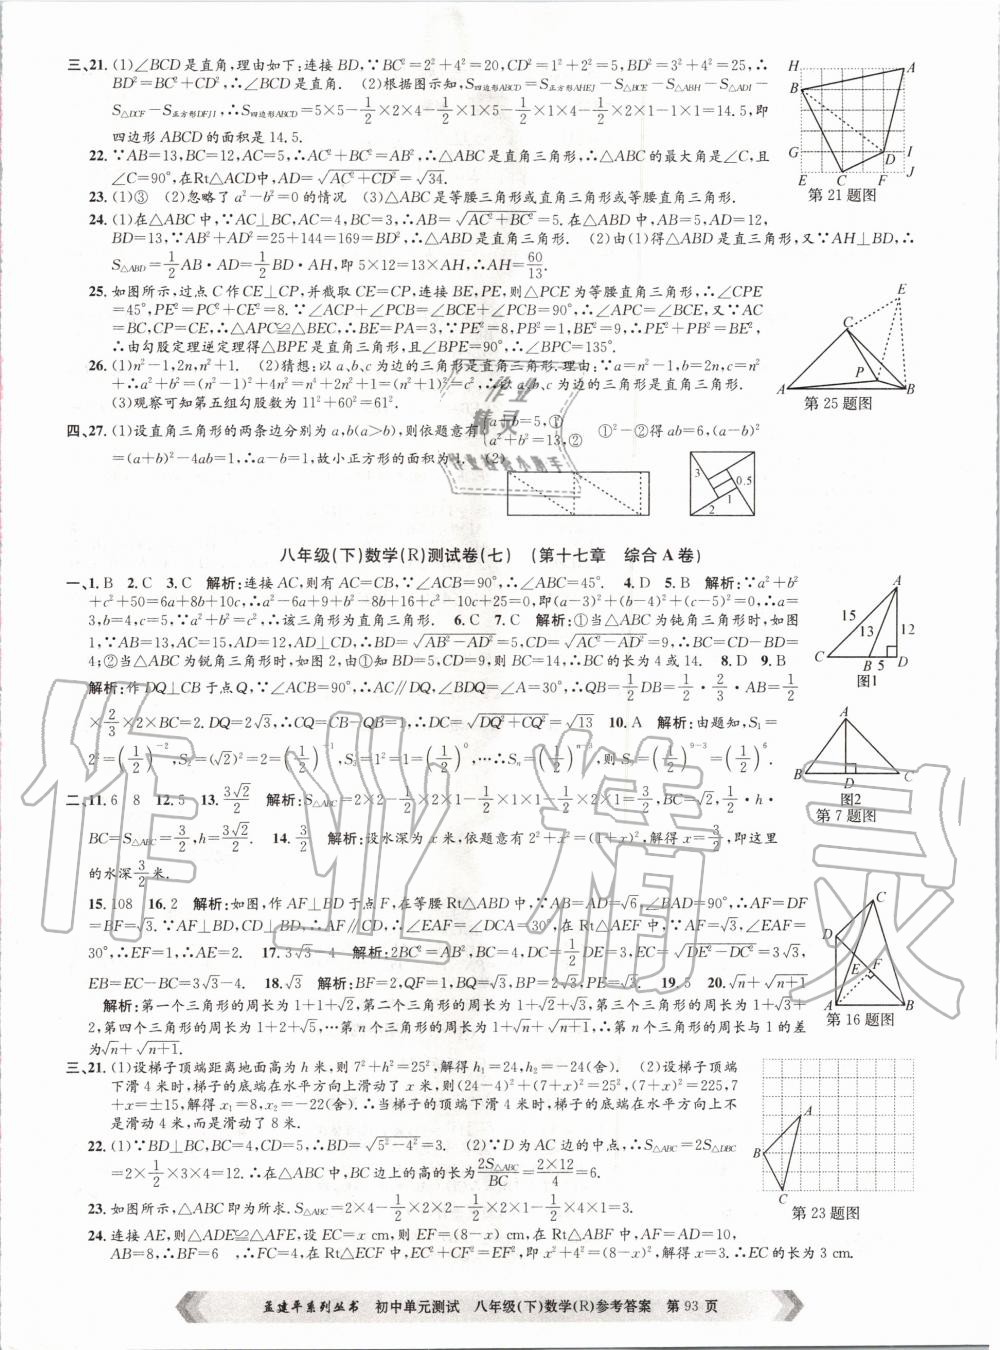 三、21. (1)∠BCD是直角,理由如下:连接BD,∵BC²=2²+4²=20,CD²=1²+2²=5,BD²=3²+4²=25,∴
BD²=BC²+CD²,∴∠BCD是直角. (2)根据图示知,S四边形ABCD=S正方形AHEJ-S△BCE-S△ABH-S△ADI-
S△DCF-S正方形DFJI,∴S四边形ABCD=5×5-1/2×2×4-1/2×1×5-1/2×1×4-1/2×1×2-1×1=14.5,即
四边形ABCD的面积是14.5.
22. ∵AB=13,BC=12,AC=5,∴AC²+BC²=AB²,∴△ABC是直角三角形,∴△ABC的最大角是∠C,且
∠C=90°,在Rt△ACD中,AD=√(AC²+CD²)=√34.
23. (1)③ (2)忽略了a²-b²=0的情况 (3)△ABC是等腰三角形或直角三角形或等腰直角三角形.
24. (1)在△ABC中,∵AC⊥BC,AC=4,BC=3,∴AB=√(AC²+BC²)=5.在△ABD中,AB=5,AD=12,
BD=13,∵AB²+AD²=25+144=169=BD²,∴△ABD是直角三角形. (2)由(1)得△ABD是直角三角形,又∵AH⊥BD,∴
S△ABD=1/2AB·AD=1/2BD·AH,即5×12=13×AH,∴AH=60/13.
25. 如图所示,过点C作CE⊥CP,并截取CE=CP,连接BE,PE,则△PCE为等腰直角三角形,∴∠CPE
=45°,PE²=PC²+CE²=8.∵∠ACP+∠PCB=∠BCE+∠PCB=90°,∴∠APC=∠BCE,又∵AC
=BC,CP=CE,∴△APC≌△BEC,∴BE=PA=3,∵PE²=8,PB²=1,BE²=9,∴PE²+PB²=BE²,
∴由勾股定理逆定理得△BPE是直角三角形,且∠BPE=90°,∴∠BPC=135°.
26. (1)n²-1,2n,n²+1. (2)猜想:以a,b,c为三边的三角形是直角三角形.理由:∵a=n²-1,b=2n,c=n²
+1,∴a²+b²=(n²-1)²+4n²=n⁴+2n²+1=(n²+1)²=c²,∴以a,b,c为三边的三角形是直角三角形.
(3)观察可知第五组勾股数为11²+60²=61².
四、27. (1)设直角三角形的两条边分别为a,b(a>b),则依题意有{a+b=5,① a²+b²=13,② ①²-②得ab=6,(a-b)²
=(a+b)²-4ab=1,∴a-b=1,故小正方形的面积为1. (2)
H A B G D I E C F J
第21题图
E C P A B
第25题图
3 0.5 1 2
八年级(下)数学(R)测试卷(七) (第十七章 综合A卷)
一、1. B 2. C 3. C 解析:连接AC,则有AC=BC=√5.∵∠ACB=90°,∴∠ABC=45°. 4. D 5. B 解析:∵a²+b²
+c²+50=6a+8b+10c,∴a²-6a+9+b²-8b+16+c²-10c+25=0,即(a-3)²+(b-4)²+(c-5)²=0,∴a=
3,b=4,c=5,∵a²+b²=c²,∴该三角形为直角三角形. 6. C 7. C 解析:①当△ABC为钝角三角形时,如图
1,∵AB=13,AC=15,AD=12,AD⊥CD,∴BD=√(AB²-AD²)=5,CD=√(AC²-AD²)=9,∴BC=CD-BD=
4;②当△ABC为锐角三角形时,如图2,由①知BD=5,CD=9,∴BC=14,∴BC的长为4或14. 8. D 9. B
解析:作DQ⊥CB于点Q,∵∠ACB=90°,∴AC∥DQ,∠BDQ=∠A=30°,∴QB=1/2DB=1/2·2/3·AB=1/2
×2/3×2×BC=2.DQ=2√3,∴CQ=CB-QB=1,∴DC=√(DQ²+CQ²)=√13 10. A 解析:由题知,S₁=
2²=(1/2)⁻²,S₂=(√2)²=2=(1/2)⁻¹,S₃=1²=1=(1/2)⁰,…∴Sₙ=(1/2)ⁿ⁻³,则S₉=(1/2)⁹⁻³=(1/2)⁶.
二、11. 6 8 12. 5 13. 3√2/2 解析:S△ABC=2×2-1/2×2×1-1/2×1×1-1/2×2×1=3/2,BC=√2,1/2·h·
BC=S△ABC=3/2,h=3√2/2. 14. 3/2 解析:设水深为x米,依题意有2²+x²=(1+x)²,解得x=3/2,即这里
的水深3/2米.
15. 108 16. 2 解析:如图,作AF⊥BD于点F,在等腰Rt△ABD中,∵AB=AD=√6,∠BAD=90°,∴AF=DF
=BF=√3.∵AF⊥BD,CD⊥BD,∴AF∥CD,∴∠EAF=∠DCA=30°,在Rt△AEF中,∵AF=√3,∠EAF=
30°,∴EF=1,∴AE=2. 17. 3√3-4 解析:2BC²=AB²,BC=4,DC=1/2DE=3,EC=√(DE²-DC²)=3√3,
EB=EC-BC=3√3-4. 18. √3 解析:BF=2,QF=1,BQ=√3,BP=2√3,PE=√3. 19. 5 20. √n+√(n+1)
解析:第一个三角形的周长为1+1+√2,第二个三角形的周长为1+√2+√3,第三个三角形的周长为1+√3+
2,第四个三角形的周长为1+2+√5,…第n个三角形的周长为1+√n+√(n+1),∴第n个三角形的周长与1的差
为√n+√(n+1).
A 15 13 12 C B 5 D
图1
A B D C
图2
第7题图
C D E F A B
第16题图
三、21. (1)设梯子顶端距离地面高为h米,则7²+h²=25²,解得h₁=24,h₂=-24(舍). (2)设梯子顶端
下滑4米时,梯子的底端在水平方向上滑动了x米,则(24-4)²+(7+x)²=25²,(7+x)²=225,7
+x=±15,解得x₁=8,x₂=-22(舍).∴当梯子的顶端下滑4米时,梯子的底端在水平方向上不
是滑动4米,而是滑动了8米.
22. (1)∵BD⊥BC,BC=4,CD=5,∴BD=√(5²-4²)=3. (2)∵D为AC边的中点,∴S△ABC=2S△DBC
=2×1/2×3×4=12.∴在△ABC中,BC边上的高的长为2S△ABC/BC=2×12/4=6.
23. 如图所示,△ABC即为所求.S△ABC=2×4-1/2×2×2-1/2×2×1-1/2×4×1=3.
24. 连接AE,则△ADE≌△AFE,设EC=x cm,则EF=(8-x) cm.在Rt△ABF中,AF=AD=10,
AB=8,∴BF=6 ,∴FC=4,在Rt△ECF中,EC²+CF²=EF²,即x²+4²=(8-x)²,解得x=3.∴EC的长为3 cm.
A B C
第23题图
孟建平系列丛书 初中单元测试 八年级(下)数学(R)参考答案 第93页
作业精灵